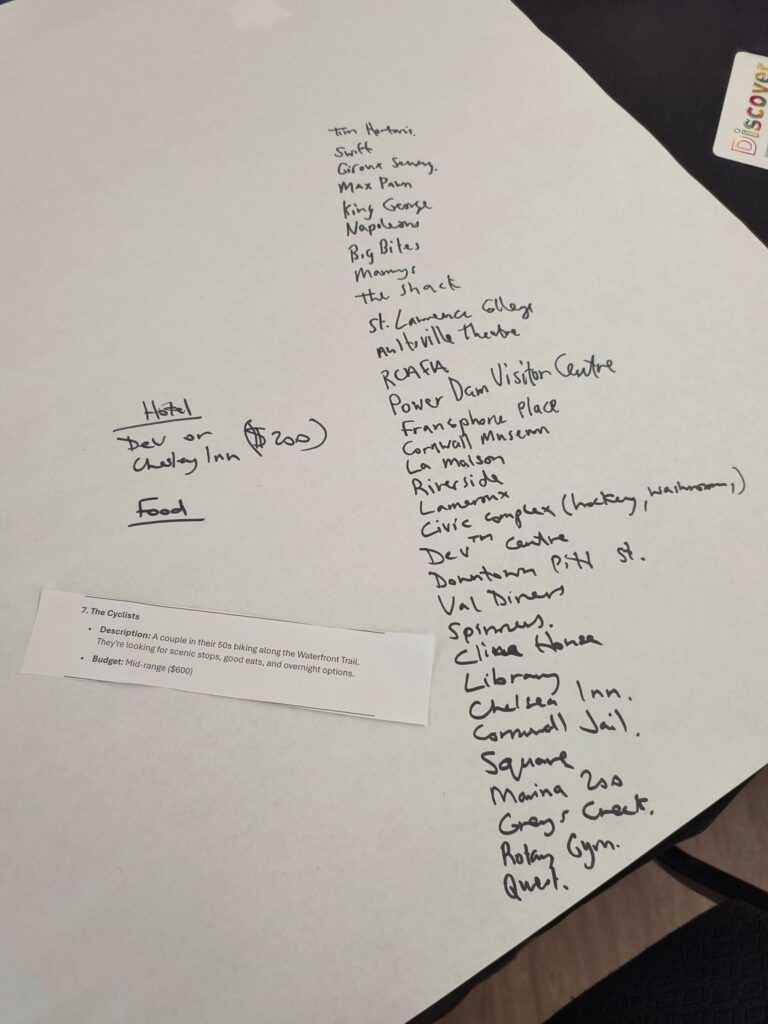 Discover
Tim Hortons.
Swift
Giroux Sewing.
Max Pawn
King George
Napoleons
Big Bites
Mannys
The Shack
St. Lawrence College
Aultsville Theatre
RCAFA
Power Dam Visitor Centre
Francophone Place
Cornwall Museum
La Maison
Riverside
Lamoureux
Civic Complex (hockey, washroom,)
Dev™ Centre
Downtown Pitt St.
Val Diners
Spinners.
House
Library
Chelsea Inn.
Cornwall Jail.
Square
Marina 200
Grays Creek.
Rotary Gym.
Quest.
Hotel
Dev or ($200)
Chesley Inn
Food
7. The Cyclists
• Description: A couple in their 50s biking along the Waterfront Trail.
They're looking for scenic stops, good eats, and overnight options.
• Budget: Mid-range ($600)